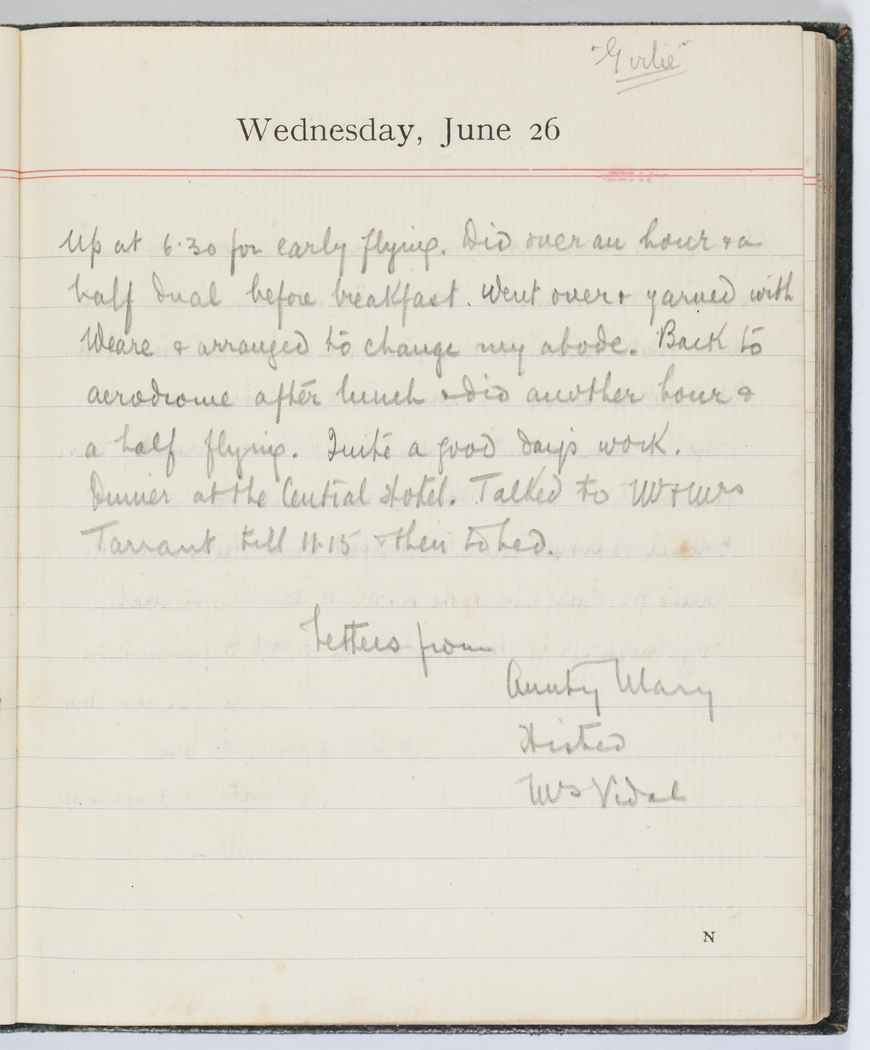 "Girlie"
Wednesday, June 26
Up at 6.30 for early flying. Did over an hour & a
half dual before breakfast. Went over & yarned with
Weare & arranged to change my abode. Back to
aerodrome after lunch & did another hour &
a half flying. Quite a good days work.
Dinner at the Central Hotel. Talked to Mr & Mrs
Tarrant till 11.15 & then to bed.
Letters from
Aunty Mary
Histed
Mrs Vidal
N